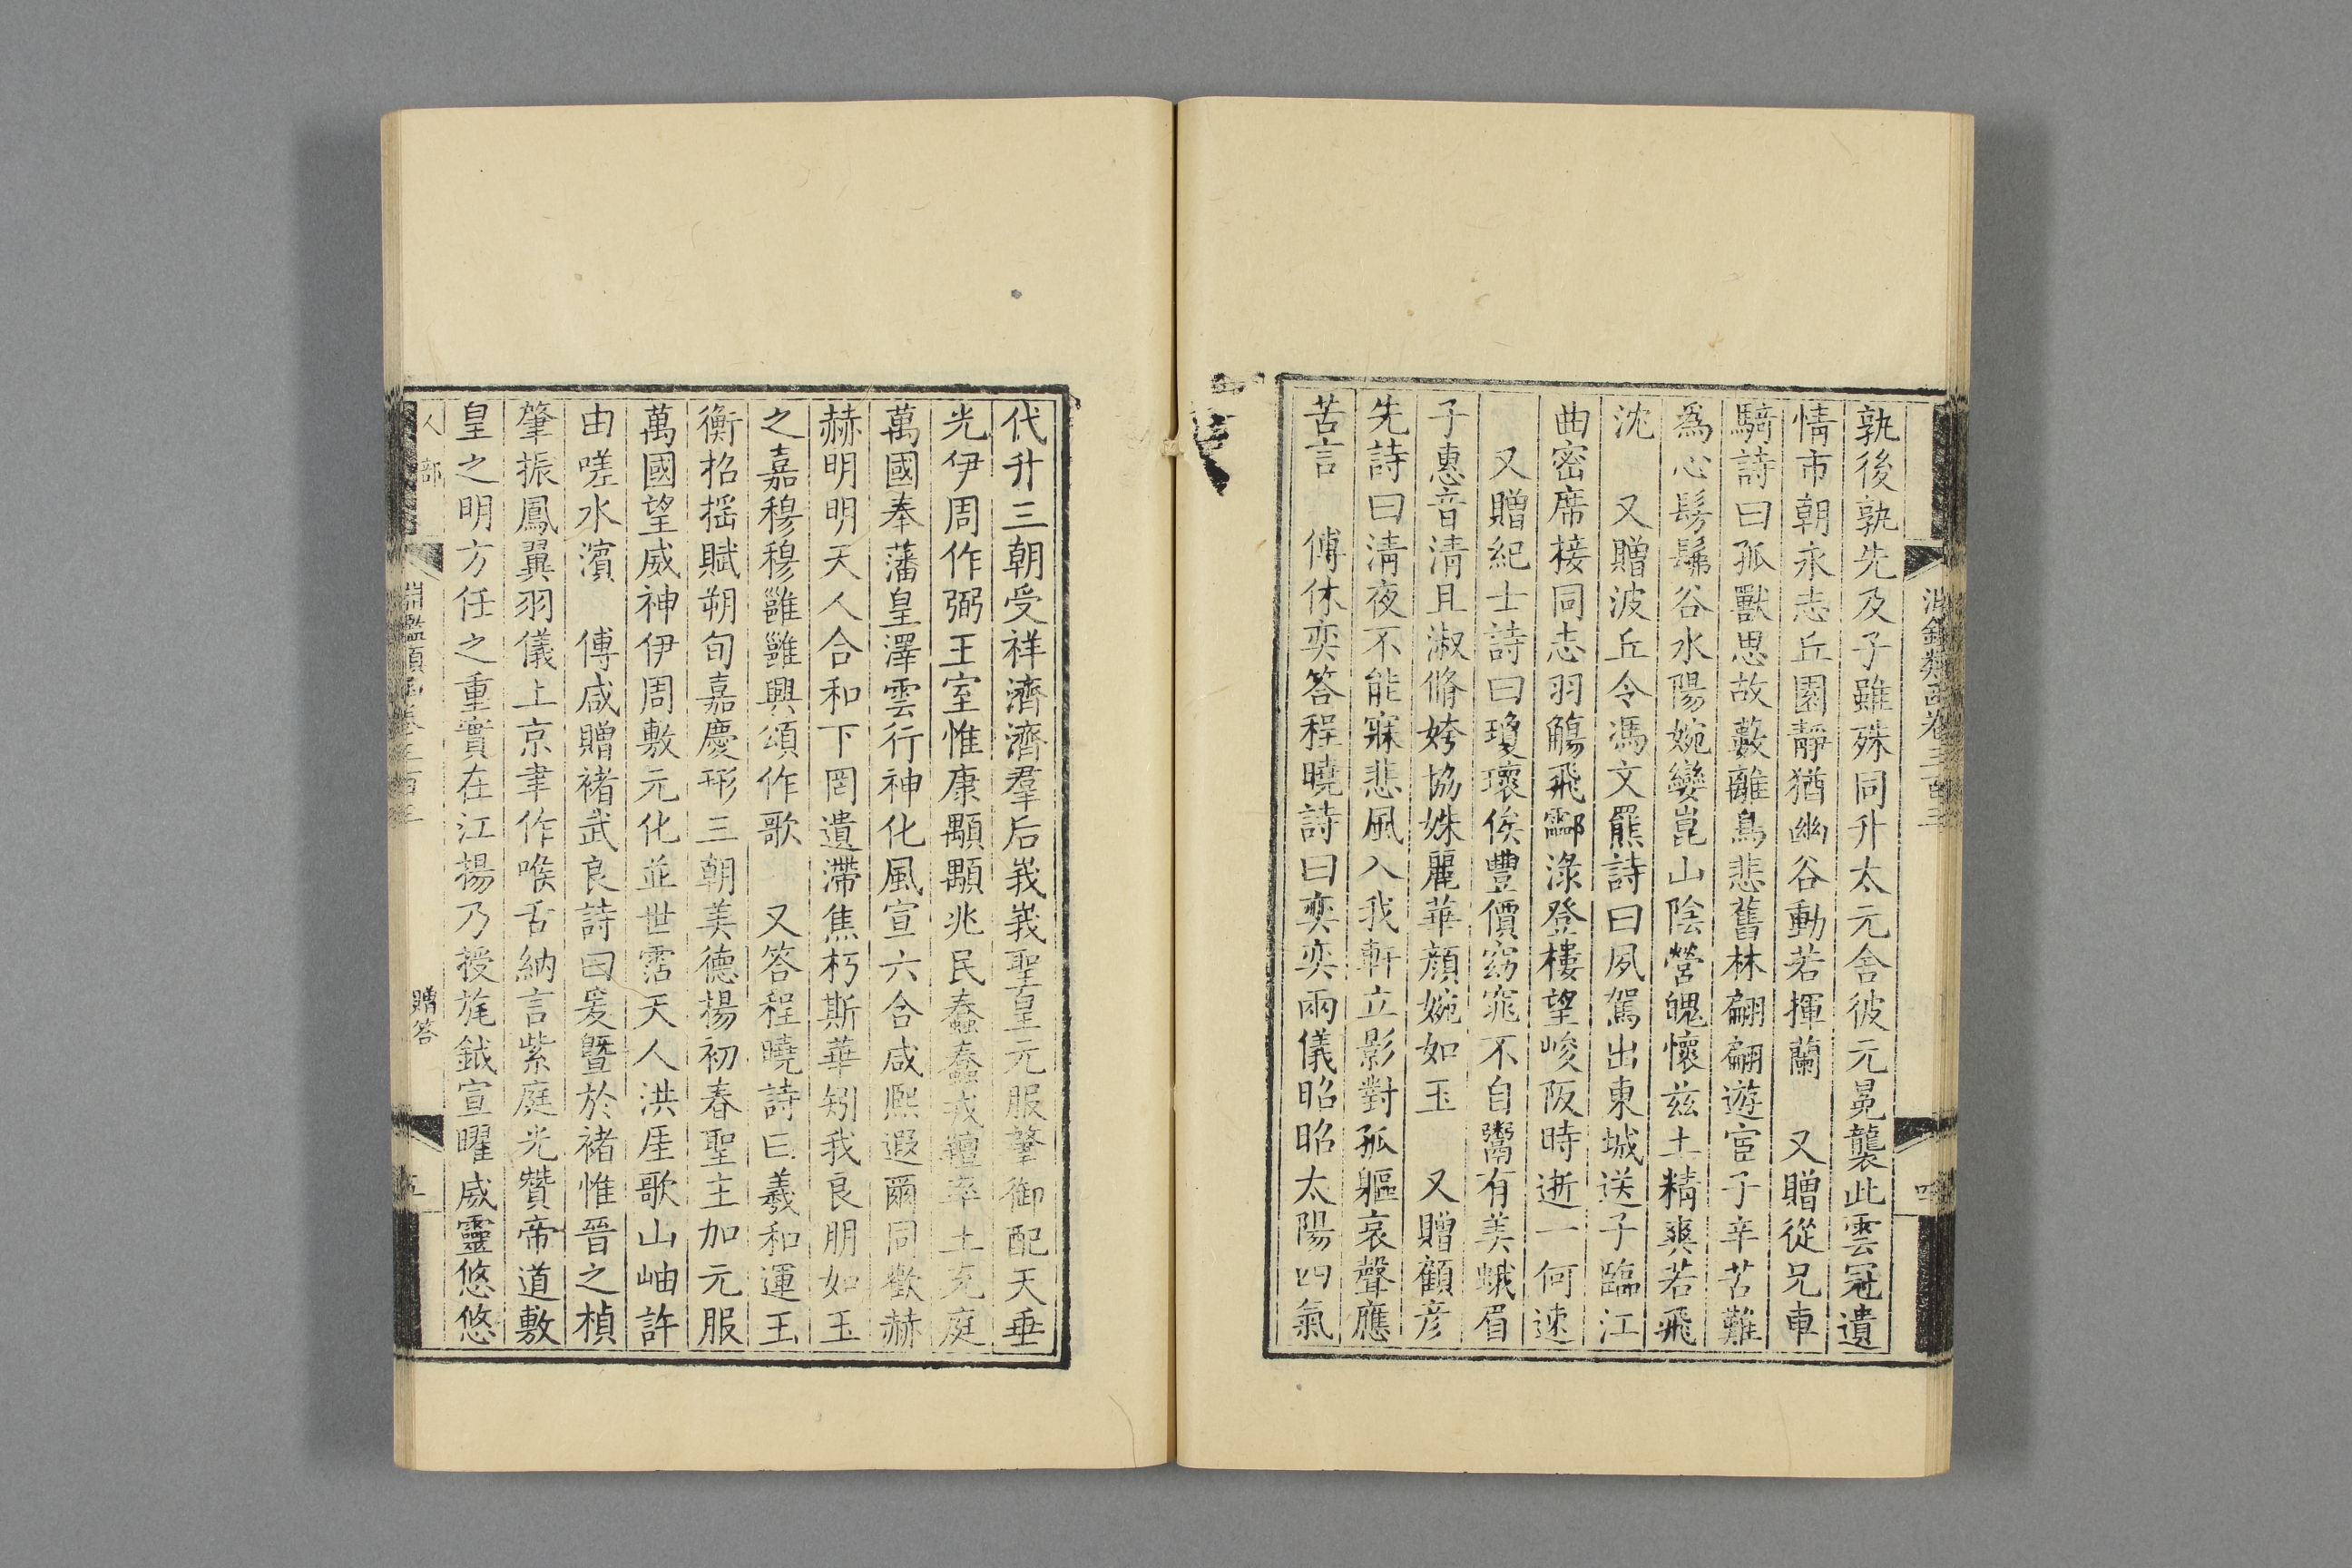 孰後孰先及子雖殊同升太元舍彼元冕襲此雲冠遺
情市朝永志丘園靜猶幽谷動若揮蘭　又贈從兄車
騎詩曰孤獸思故藪離鳥悲舊林翩翩遊宦子辛苦難
爲心髣髴谷水陽婉孌崑山陰營魄懷兹土精爽若飛
沈　又贈波丘令馮文羆詩曰夙駕出東城送子臨江
曲密席接同志羽觴飛酃淥登樓望峻阪時逝一何速
又贈紀士詩曰瓊瓌俟豐價窈窕不自鬻有美蛾眉
子惠音清且淑脩姱協姝麗華顔婉如玉　又贈顧彦
先詩曰清夜不能寐悲風入我軒立影對孤軀哀聲應
苦言　傅休奕答程曉詩曰奕奕兩儀昭昭太陽四氣
代升三朝受祥濟濟羣后峩峩聖皇元服肇御配天垂
光伊周作弼王室惟康顒顒兆民蠢蠢戎羶率土充庭
萬國奉藩皇澤雲行神化風宣六合咸熙遐爾同歡赫
赫明明天人合和下罔遺滯焦朽斯華矧我良朋如玉
之嘉穆穆雝雝興頌作歌　又答程曉詩曰羲和運玉
衡招摇賦朔旬嘉慶形三朝美德揚初春聖主加元服
萬國望威神伊周敷元化並世霑天人洪崖歌山岫許
由嗟水濱　傅咸贈褚武良詩曰爰曁於褚惟晉之楨
肇振鳳翼羽儀上京聿作喉舌納言紫庭光贊帝道敷
皇之明方任之重實在江揚乃授旄鉞宣曜威靈悠悠
人部
贈答